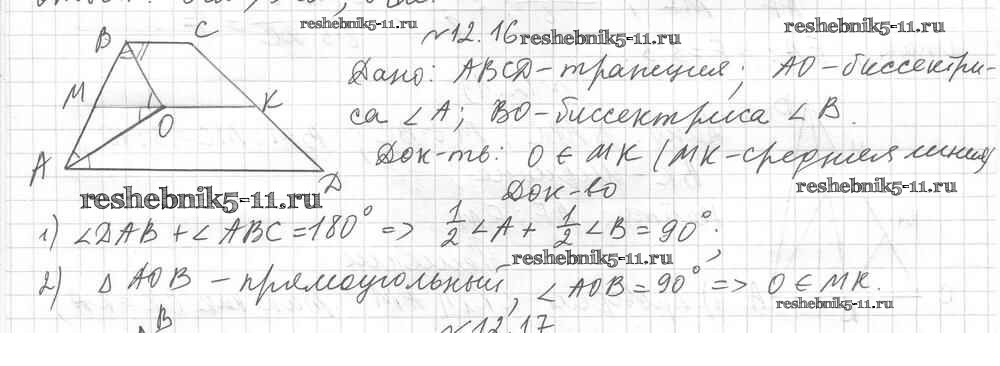 reshebnik5-11.ru
№12.16 reshebnik5-11.ru
reshebnik5-11.ru
B C
M K
O
A D
Дано: ABCD-трапеция; AO-биссектри-
са ∠A; BO-биссектриса ∠B.
Док-ть: O ∈ MK (MK-средняя линия)
reshebnik5-11.ru
reshebnik5-11.ru
Док-во
1) ∠DAB + ∠ABC = 180° => 1/2 ∠A + 1/2 ∠B = 90°;
reshebnik5-11.ru
2) △ AOB - прямоугольный, ∠AOB = 90° => O ∈ MK.
reshebnik5-11.ru
B
№12.17